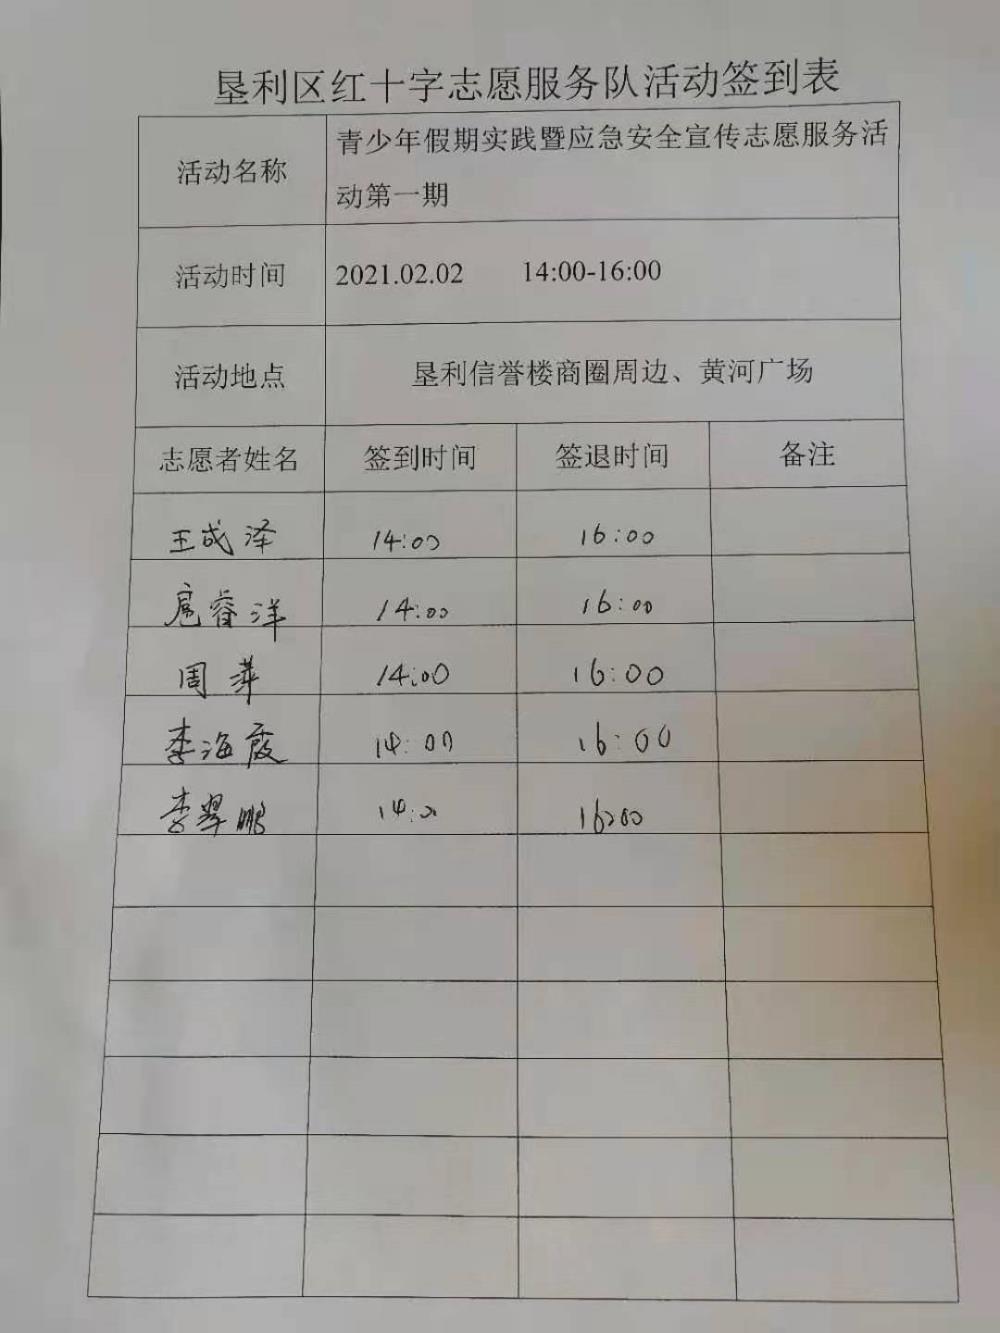 垦利区红十字志愿服务队活动签到表
活动名称 青少年假期实践暨应急安全宣传志愿服务活
动第一期
活动时间 2021.02.02 14:00-16:00
活动地点 垦利信誉楼商圈周边、黄河广场
志愿者姓名 签到时间 签退时间 备注
王成泽 14:00 16:00
扈睿洋 14:00 16:00
周萍 14:00 16:00
李海霞 14:00 16:00
李翠鹏 14:00 16:00